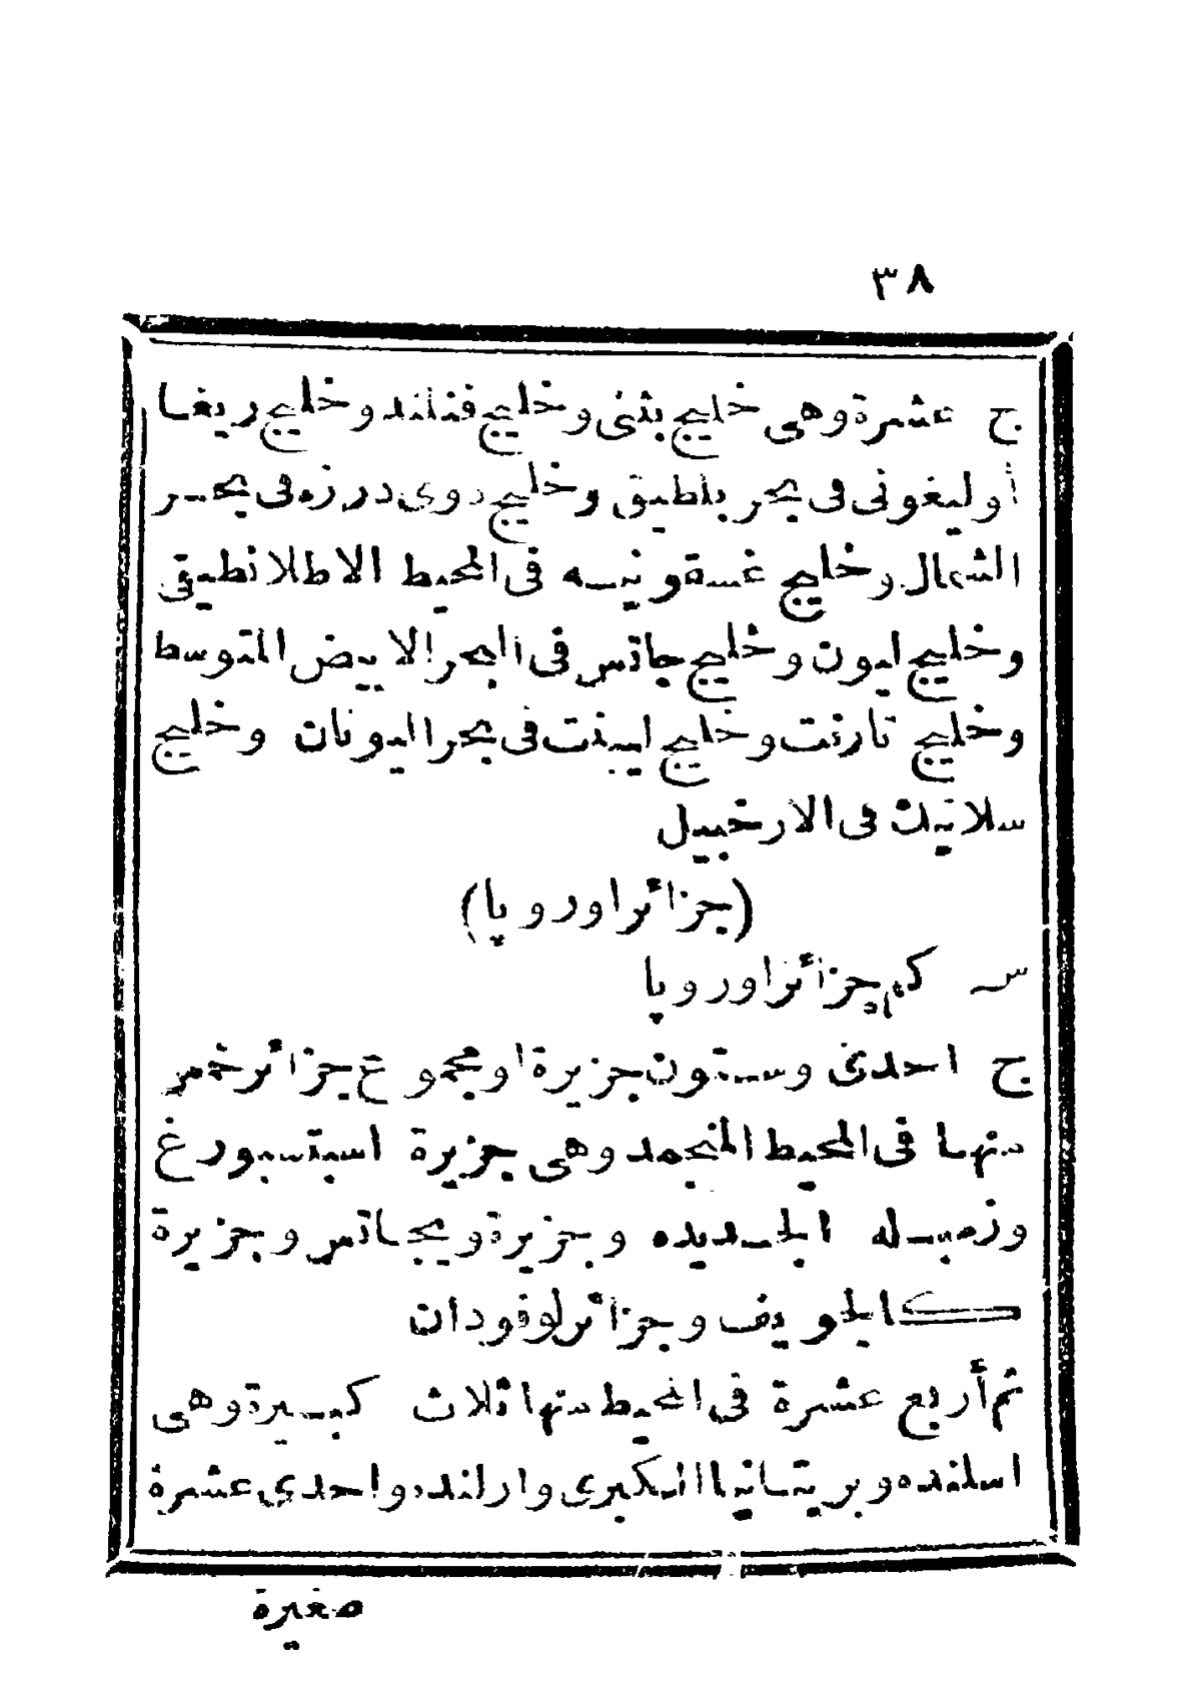 ٣٨
ج عشرة وهى خليج بثنى وخليج فنلند وخليج ريغا
أوليغونى فى بحر بلطيق وخليج دوى درزه فى بحر
الشمال وخليج غسقونيه فى المحيط الاطلانطيقى
وخليج ليون وخليج جاتس فى البحر الابيض المتوسط
وخليج تارنت وخليج ليبنت فى بحر اليونان وخليج
سلانيك فى الارخبيل
(جزائر اوروپا)
س كم جزائر اوروپا
ج احدى وستون جزيرة او مجموع جزائر خمس
منها فى المحيط المنجمد وهى جزيرة اسبتسبورغ
وزمبله الجديده وجزيرة ويجاتس وجزيرة
كالجويف وجزائر لوفودان
ثم أربع عشرة فى المحيط منها ثلاث كبيرة وهى
اسلنده وبريتانيا الكبرى وارلنده واحدى عشرة
صغيرة